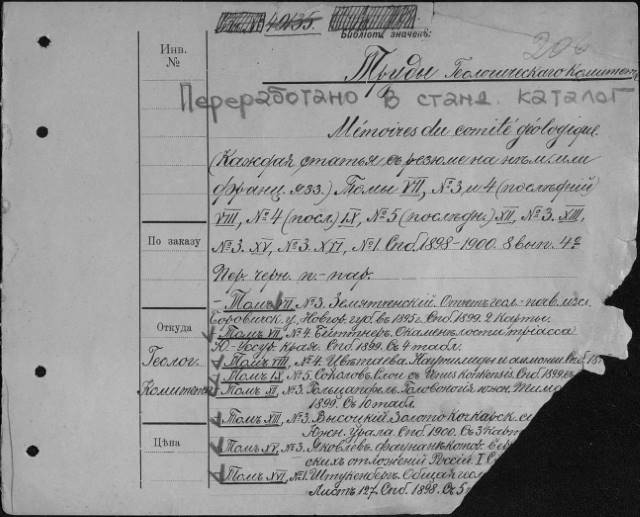 40135.
библіот. значекъ:
206
Инв.
№
Труды Геологическаго Комитета
Переработано в станд. каталог
Mémoires du comité géologique.
(Каждая статья съ резюме на нѣм. или
франц. язз.) Томы VII, № 3 и 4 (послѣдній)
VIII, № 4 (посл.) IX, № 5 (послѣдн.) XII, № 3. XIII,
№ 3. XV, № 3. XVI, № 1. Спб 1898-1900. 8 вып. 4º
По заказу
Пер. черн. п.-пар.
- Томъ VII № 3. Земятченскій. Отчетъ геол.
Боровичск. у. Новгор. губ. въ 1895 г. Спб 1899. 2 карты.
Откуда
Геолог.
Комитета
Томъ VII, № 4. Биттнеръ. Окаменѣлости тріаса
Ю.-Уссур. края. Спб 1899. Съ 4 табл.
Томъ VIII, № 4. Цвѣтаева. Наутилиды и аммонеи. Спб
Томъ IX, № 5. Соколовъ. Слои съ Venus konkensis. Спб 1899
Томъ XII, № 3. Гольцапфель. Головоногія южн. Тима
1899. Съ 10 табл.
Томъ XIII, № 3. Высоцкій. Золото Кочкарск. си
Южн. Урала. Спб 1900. Съ 3 карт
Цѣна
Томъ XV, № 3. Яковлевъ. Фауна нѣкотор. вер
скихъ отложеній Россіи. I
Томъ XVI, № 1. Штукенбергъ. Общая геол
Листъ 127. Спб. 1898. Съ 5